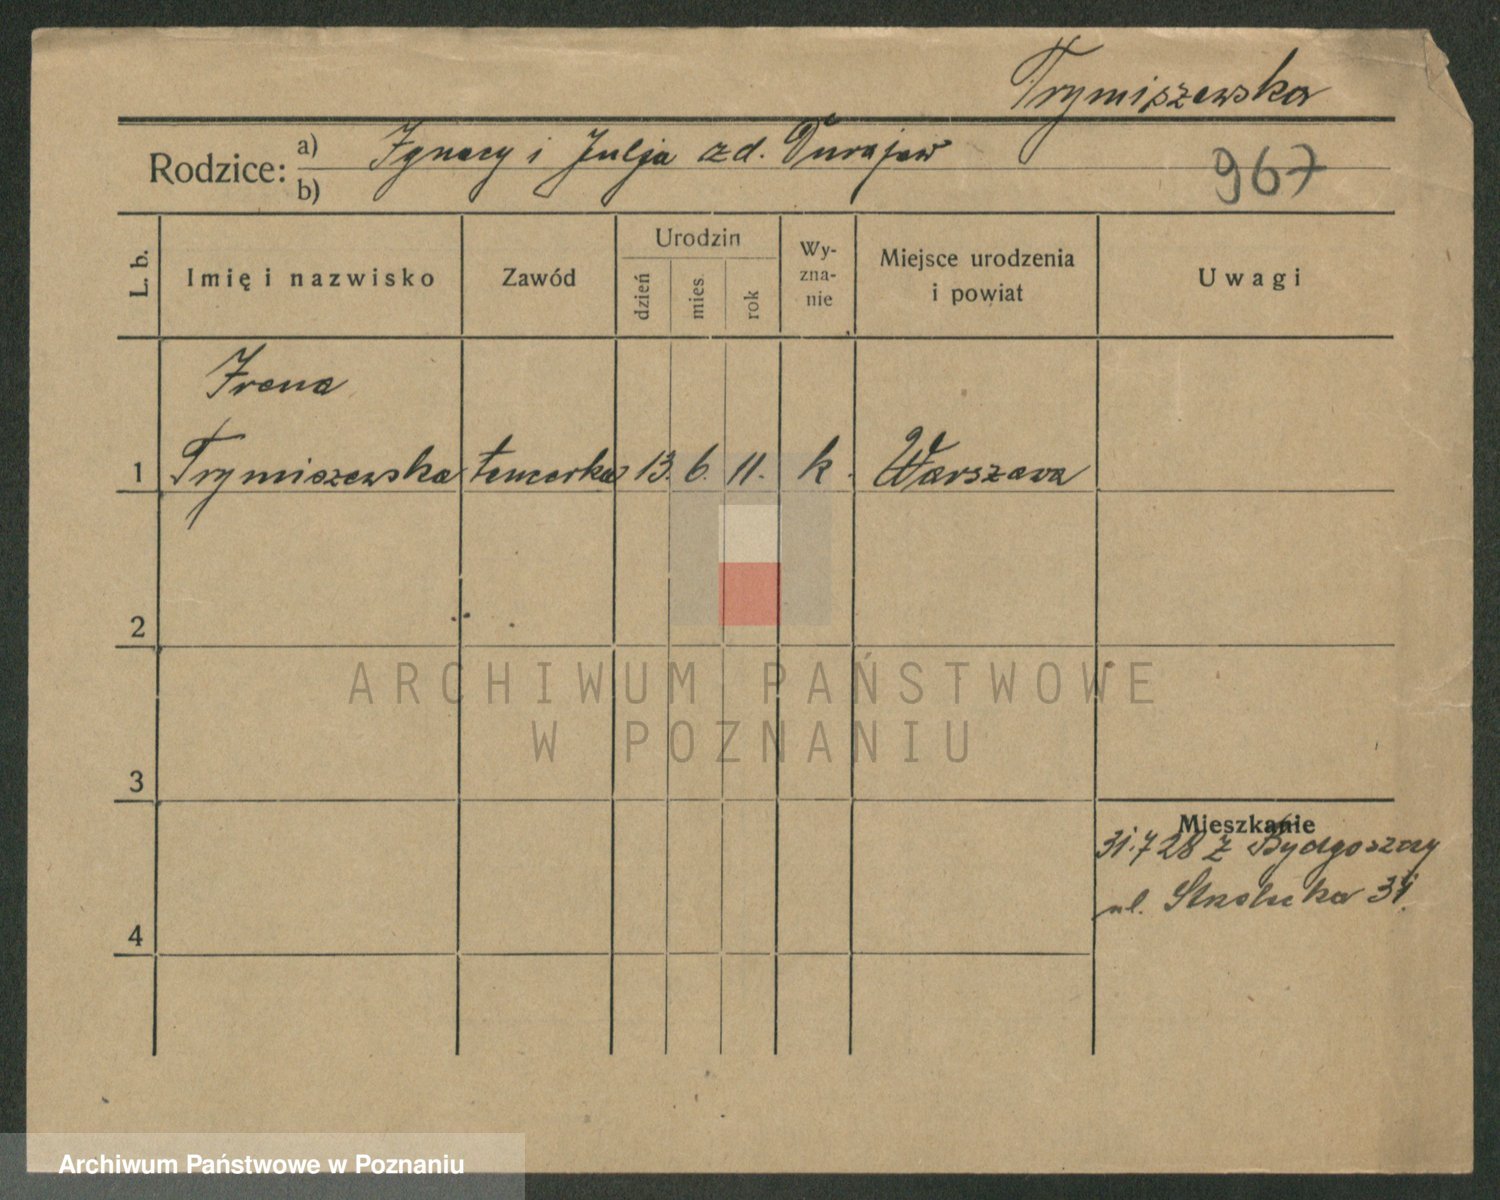 Trymiszewska
Rodzice: a) Ignacy i Julja zd. Durajew
b)
967
L. b.
Imię i nazwisko
Zawód
Urodzin
dzień
mies.
rok
Wy-
zna-
nie
Miejsce urodzenia
i powiat
Uwagi
Irena
1 Trymiszewska tancerka 13. 6. 11. k. Warszawa
2
3
4
Mieszkanie
31.7 28 z Bydgoszczy
ul. 31.
ARCHIWUM PAŃSTWOWE
W POZNANIU
Archiwum Państwowe w Poznaniu